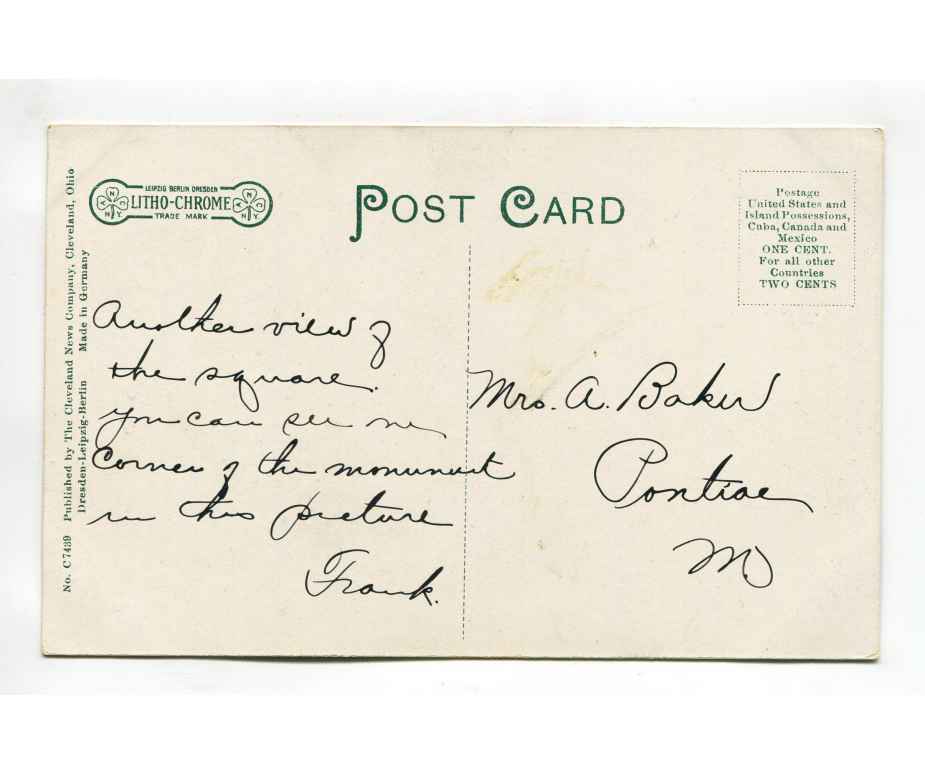 LEIPZIG BERLIN DRESDEN
LITHO-CHROME
TRADE MARK
N N C Y
N N C Y
POST CARD
Postage
United States and
Island Possessions,
Cuba, Canada and
Mexico
ONE CENT.
For all other
Countries
TWO CENTS
No. C7439 Published by The Cleveland News Company, Cleveland, Ohio
Dresden-Leipzig-Berlin Made in Germany
Another view of
the square.
You can see one
corner of the monument
in this picture
Frank.
Mrs. A. Baker
Pontiac